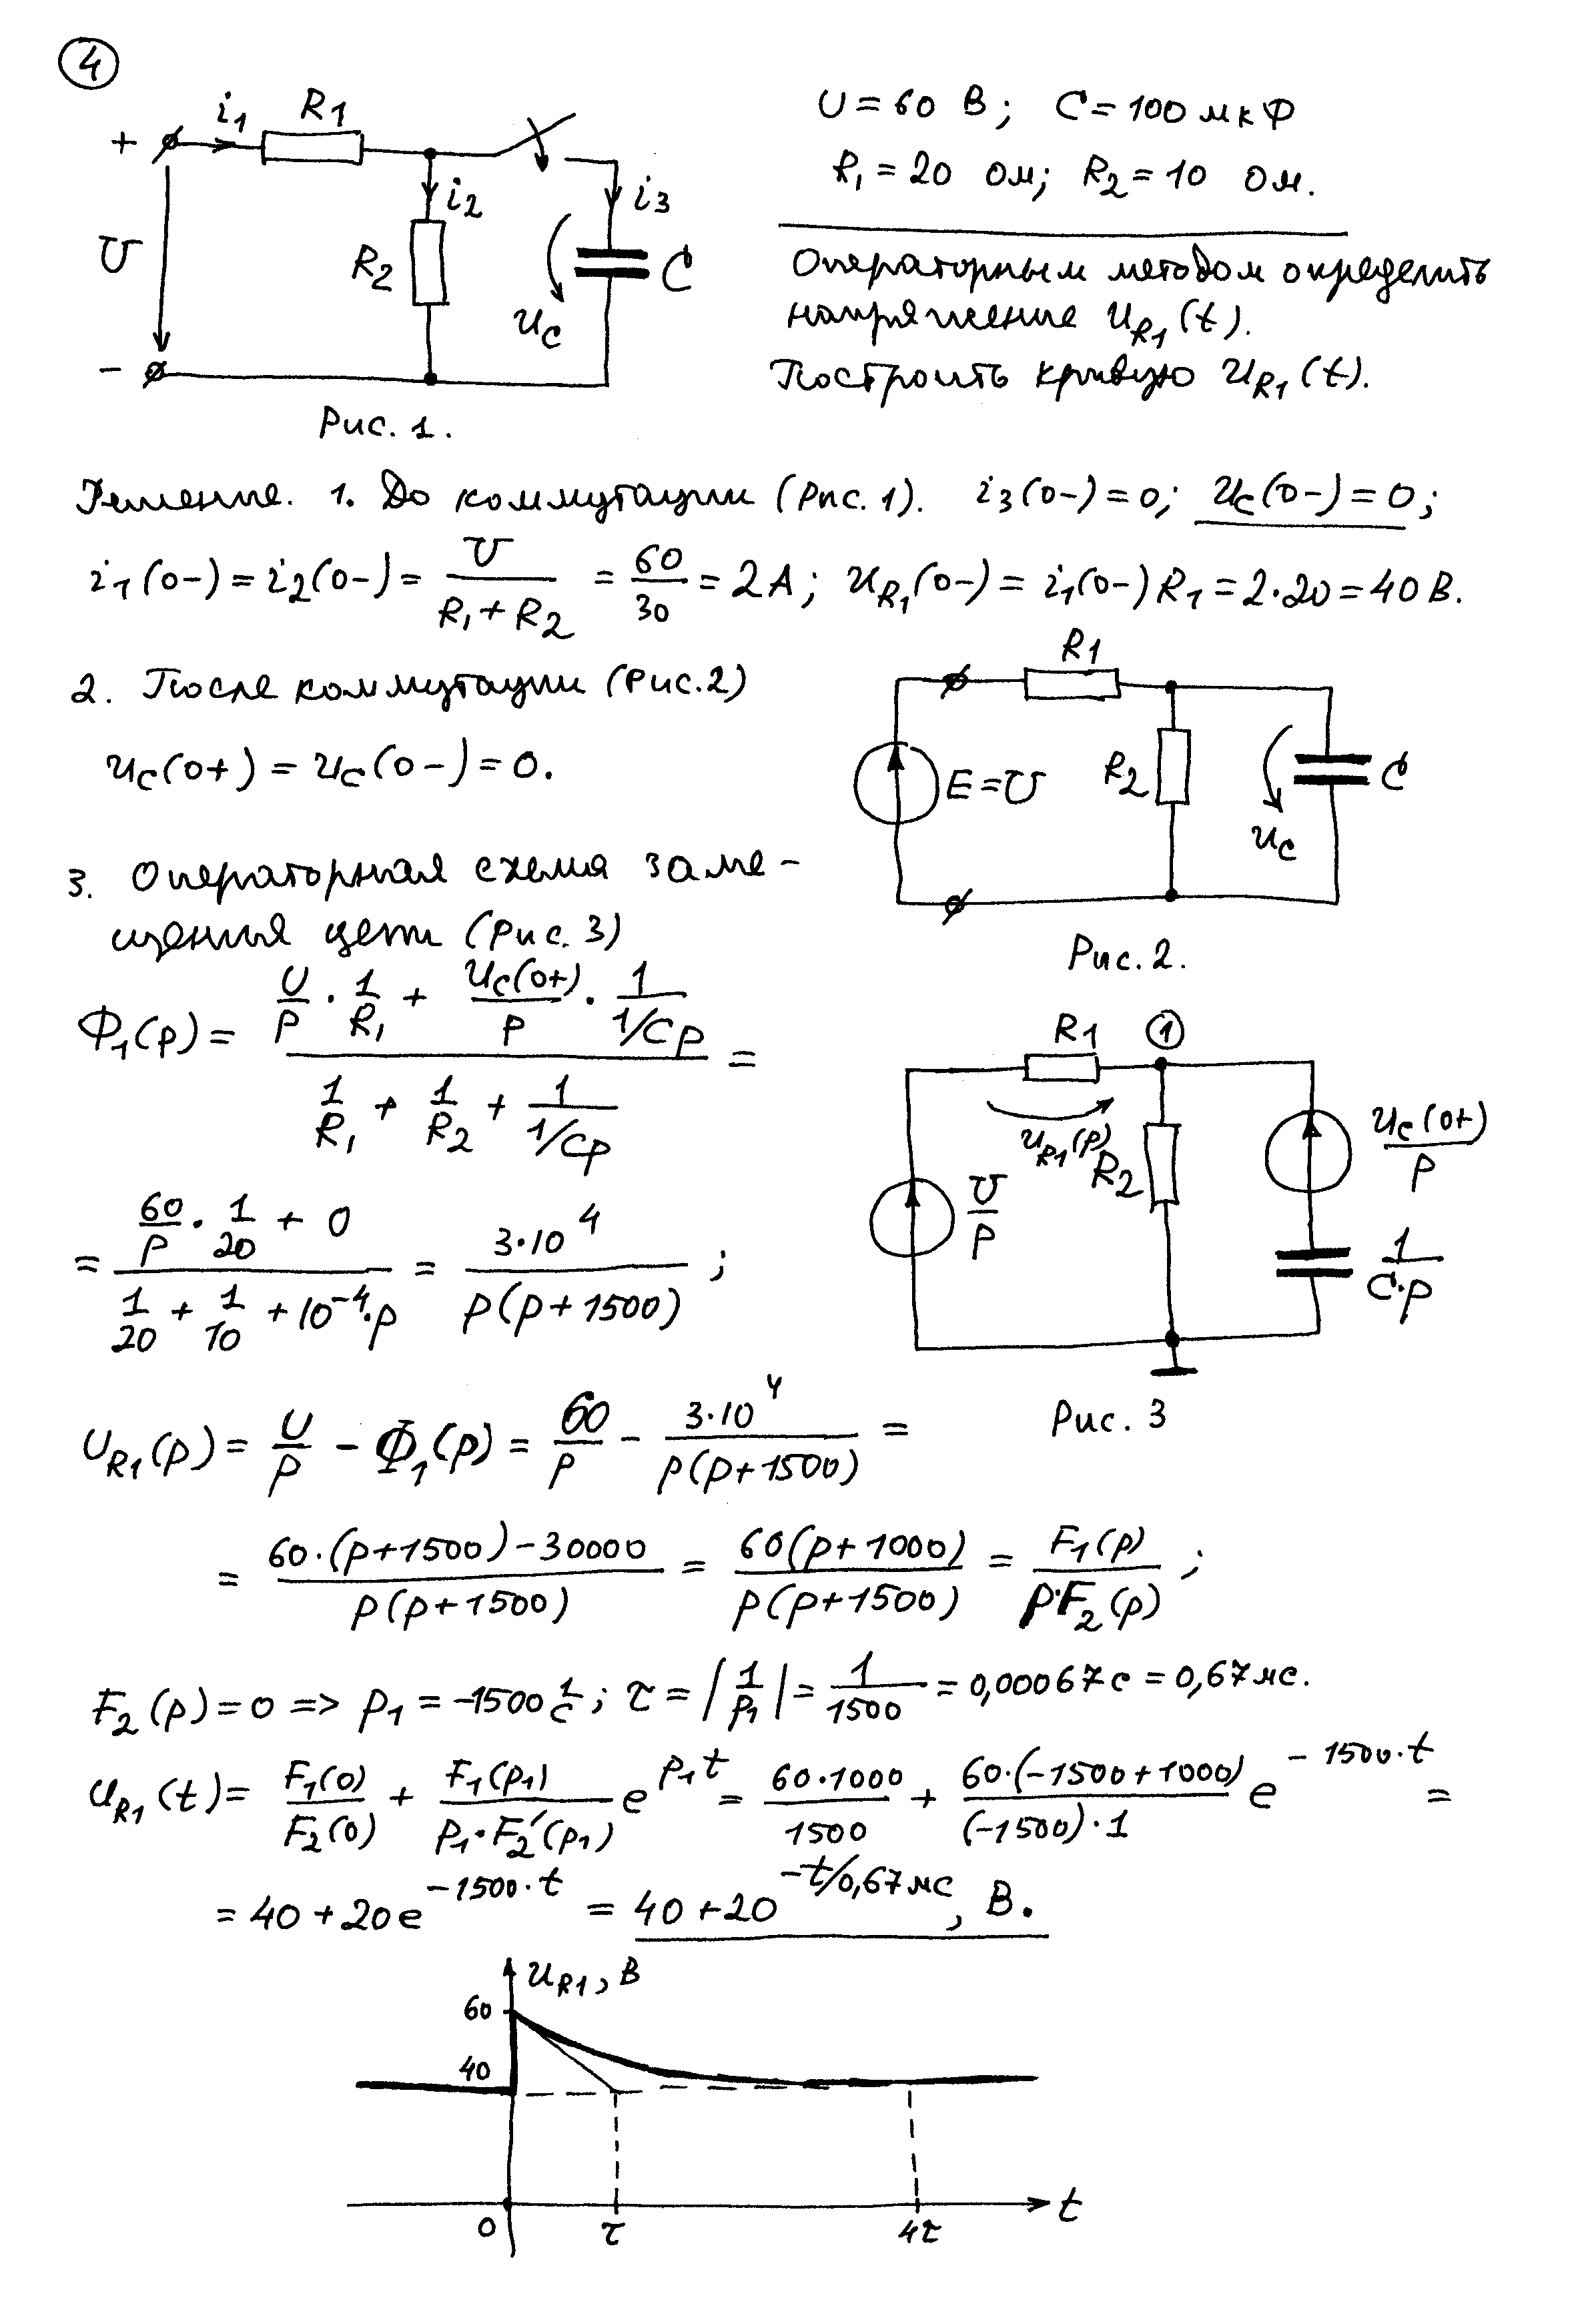 4
i₁ R1
+
U
R2 i₂ i₃
u_C C
-
Рис. 1.
U = 60 В; C = 100 мкФ
R₁ = 20 ом; R₂ = 10 ом.
Операторным методом определить
напряжение u_R1(t).
Построить кривую u_R1(t).
Решение. 1. До коммутации (Рис. 1). i₃(0-) = 0; u_C(0-) = 0;
i₁(0-) = i₂(0-) = U/(R₁+R₂) = 60/30 = 2 А; u_R1(0-) = i₁(0-) R₁ = 2·20 = 40 В.
2. После коммутации (Рис. 2)
u_C(0+) = u_C(0-) = 0.
R1
E = U R2 C
u_C
Рис. 2.
3. Операторная схема заме-
щения цепи (Рис. 3)
Ф₁(p) = (U/p · 1/R₁ + u_C(0+)/p · 1/(1/Cp)) / (1/R₁ + 1/R₂ + 1/(1/Cp)) =
= (60/p · 1/20 + 0) / (1/20 + 1/10 + 10⁻⁴·p) = 3·10⁴ / (p(p+1500)) ;
R1 1
u_R1(p) R2 u_C(0+)/p
U/p
1/(C·p)
Рис. 3
U_R1(p) = U/p - Ф₁(p) = 60/p - 3·10⁴ / (p(p+1500)) =
= (60·(p+1500)-30000) / (p(p+1500)) = 60(p+1000) / (p(p+1500)) = F₁(p) / (p·F₂(p)) ;
F₂(p) = 0 => p₁ = -1500 1/с; τ = |1/p₁| = 1/1500 = 0,00067 с = 0,67 мс.
u_R1(t) = F₁(0)/F₂(0) + F₁(p₁)/(p₁·F₂′(p₁)) e^(p₁t) = 60·1000/1500 + 60·(-1500+1000)/((-1500)·1) e^(-1500·t) =
= 40 + 20e^(-1500·t) = 40 + 20^(-t/0,67 мс), В.
u_R1, В
60
40
0 τ 4τ t